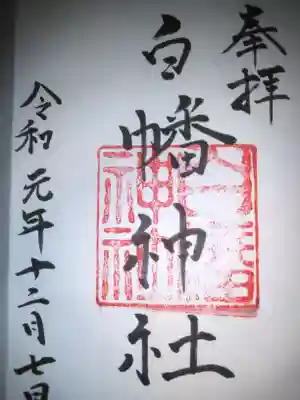 奉拝
白幡神社
令和元年十二月七日